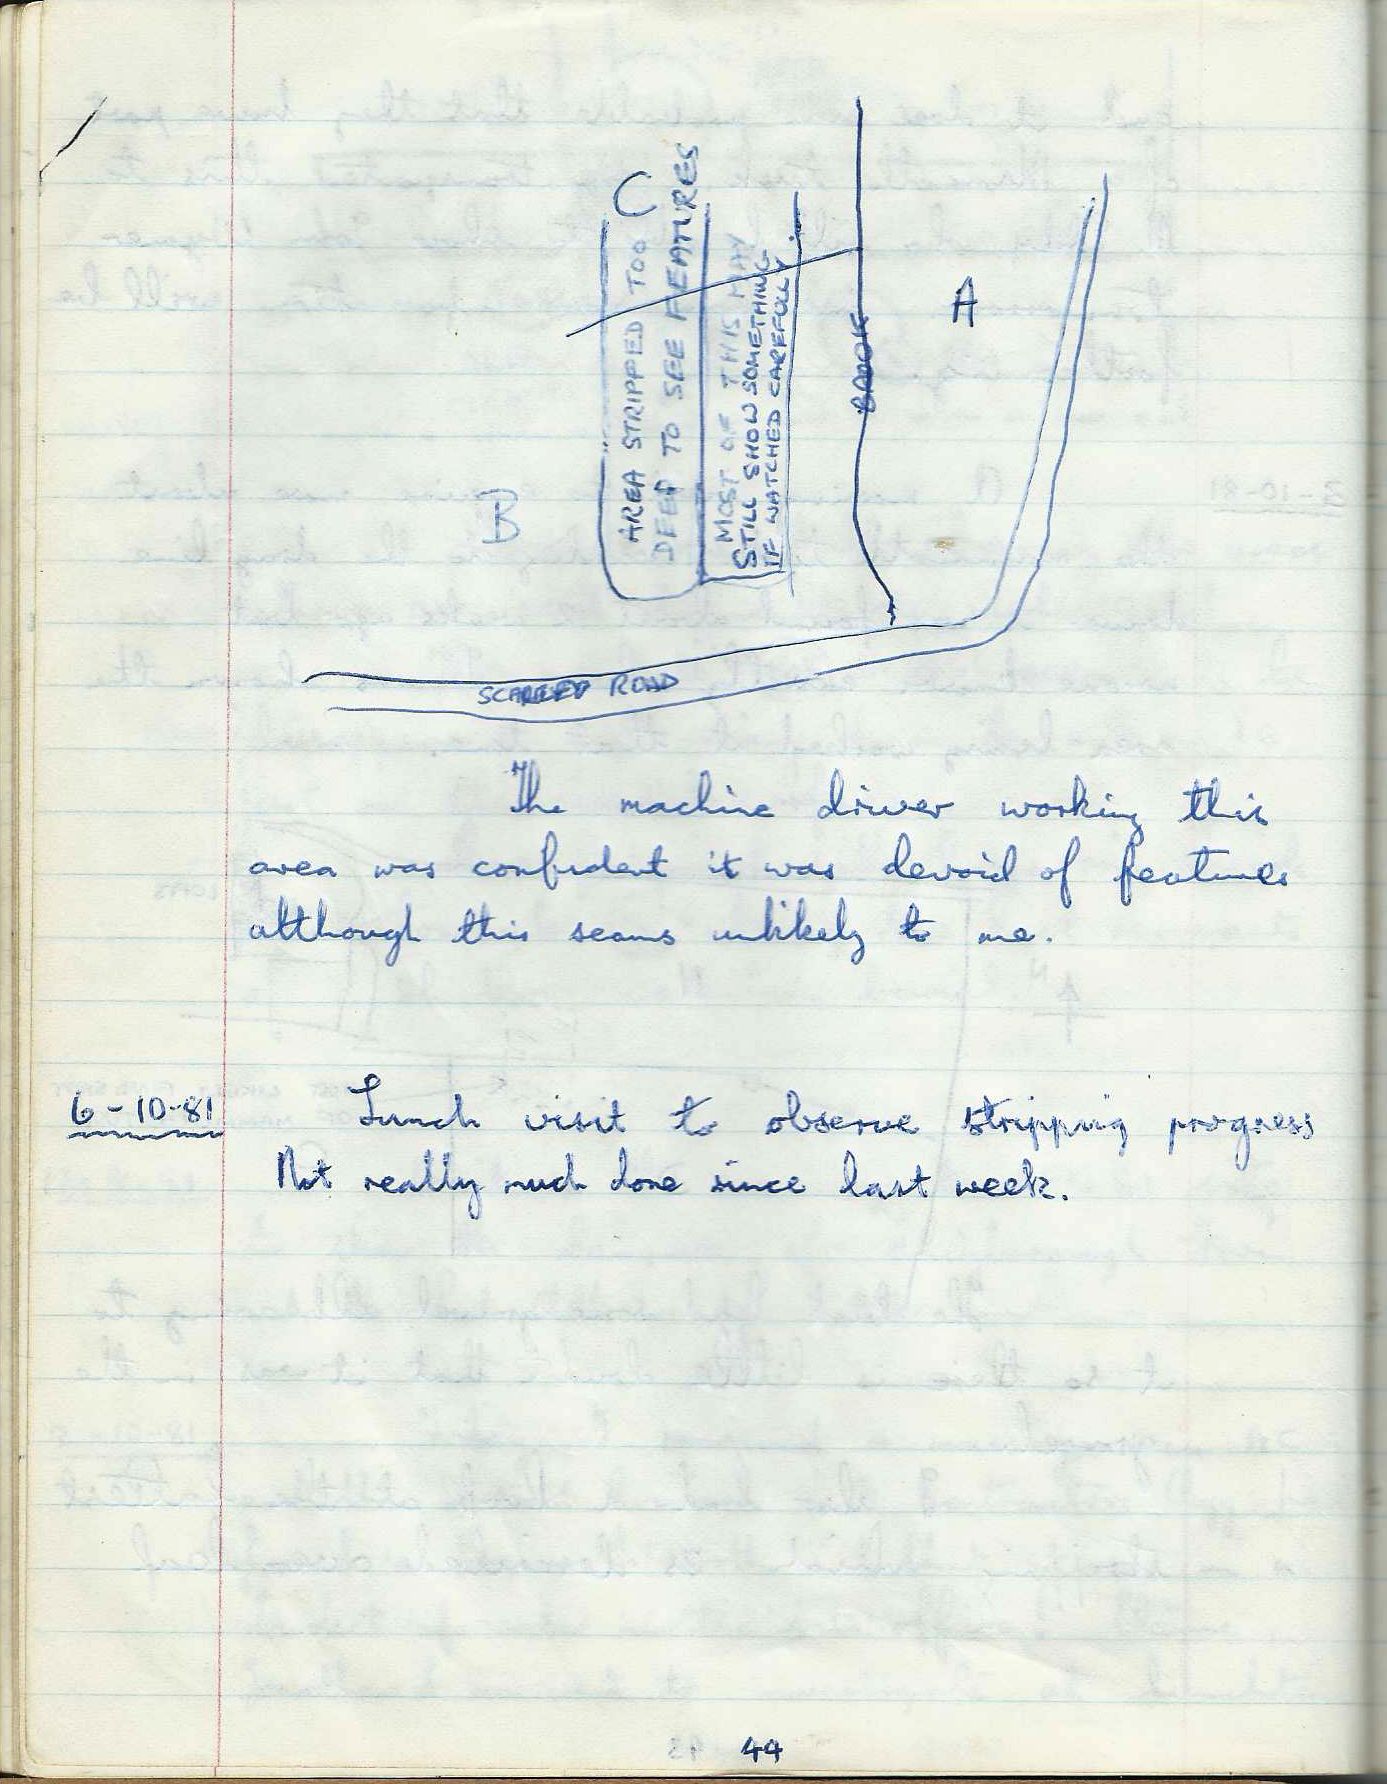 C
AREA STRIPPED TOO
DEEP TO SEE FEATURES
MOST OF THIS MAY
STILL SHOW SOMETHING
IF WATCHED CAREFULLY
BROOK
A
B
ROAD
The machine driver working this
area was confident it was devoid of features
although this seams unlikely to me.
6-10-81
Lunch visit to observe stripping progress
Not really much done since last week.
44